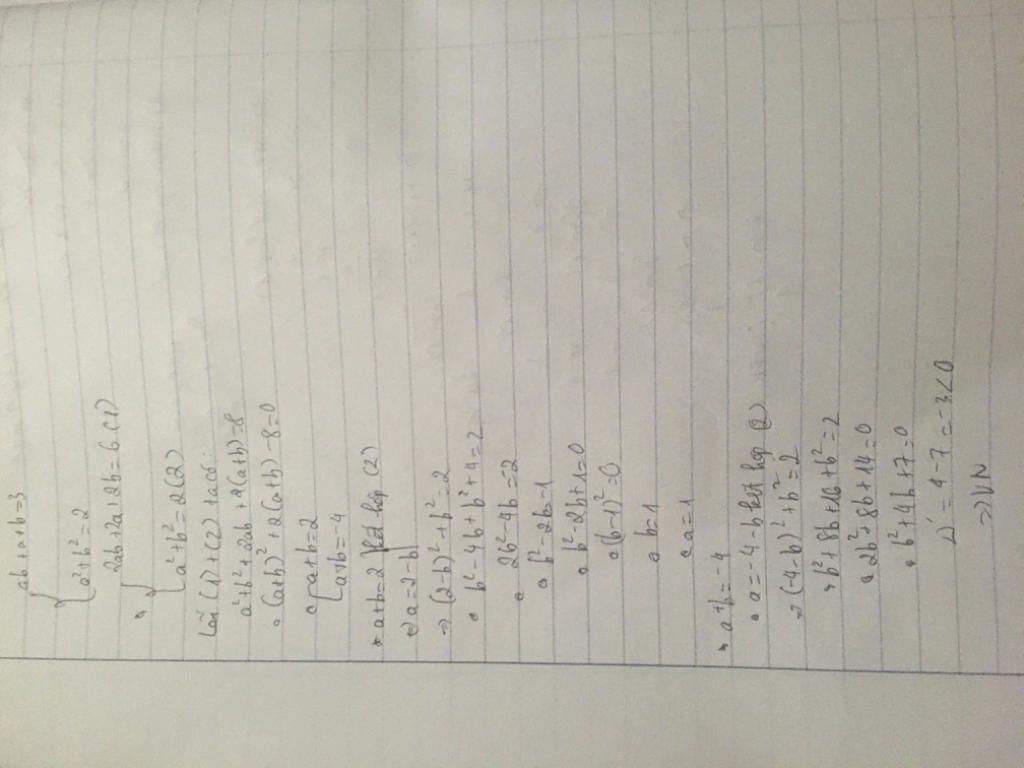 ab+a+b=3
a²+b²=2
2ab+2a+2b=6 (1)
a²+b²=2(2)
Lấy (1)+(2) ta có:
a²+b²+2ab+2(a+b)=8
(a+b)²+2(a+b)-8=0
a+b=2
a+b=-4
* a+b=2 kết hợp (2)
⇔ a=2-b
⇒ (2-b)²+b²=2
b²-4b+b²+4=2
2b²-4b=2
b²-2b=1
b²-2b+1=0
(b-1)²=0
b=1
a=1
* a+b=-4
a=-4-b kết hợp (2)
⇒ (-4-b)²+b²=2
b²+8b+16+b²=2
2b²+8b+14=0
b²+4b+7=0
Δ'=4-7=-3<0
⇒VN